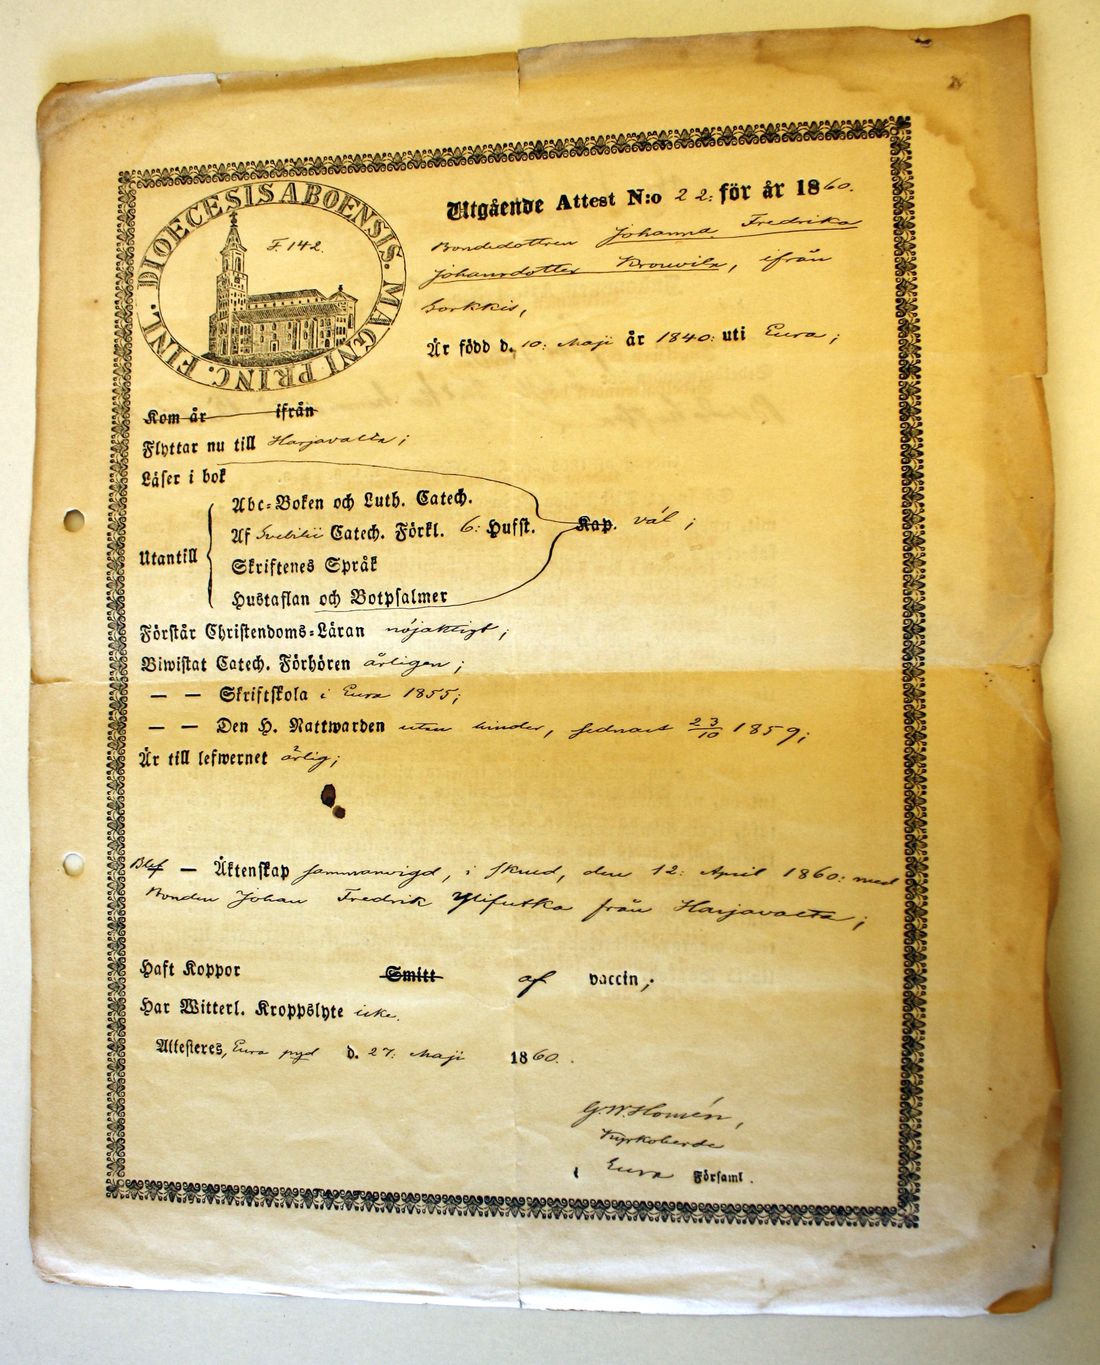 DIOECESIS ABOENSIS. MAGNI PRINC. FINL.
F. 142.
Utgående Attest N:o 22: för år 1860.
Bondedottren Johanna Fredrika
Johansdotter Krouvila, ifrån
Sorkkis,
Är född d. 10: Maji år 1840: uti Eura;
Kom år ifrån
Flyttar nu till Harjavalta;
Läser i bok
Abc-Boken och Luth. Catech.
Utantill Af Svebilii Catech. Förkl. 6: Hufst. Kap. väl;
Skriftenes Språk
Hustaflan och Botpsalmer
Förstår Christendoms-Läran nöjaktigt;
Biwistat Catech. Förhören årligen;
— — Skriftskola i Eura 1855;
— — Den H. Nattwarden utan hinder, sednast 23/10 1859;
Är till lefwernet ärlig;
Blef — Äktenskap sammanvigd, i Kiud, den 12: April 1860: med
Bonden Johan Fredrik Ylifutka från Harjavalta;
Haft Koppor Smitt af vaccin;
Har Witterl. Kroppslyte icke.
Attesteres, Eura pgd d. 27: Maji 1860.
G. W. Homén,
Kyrkoherde
i Eura Församl.